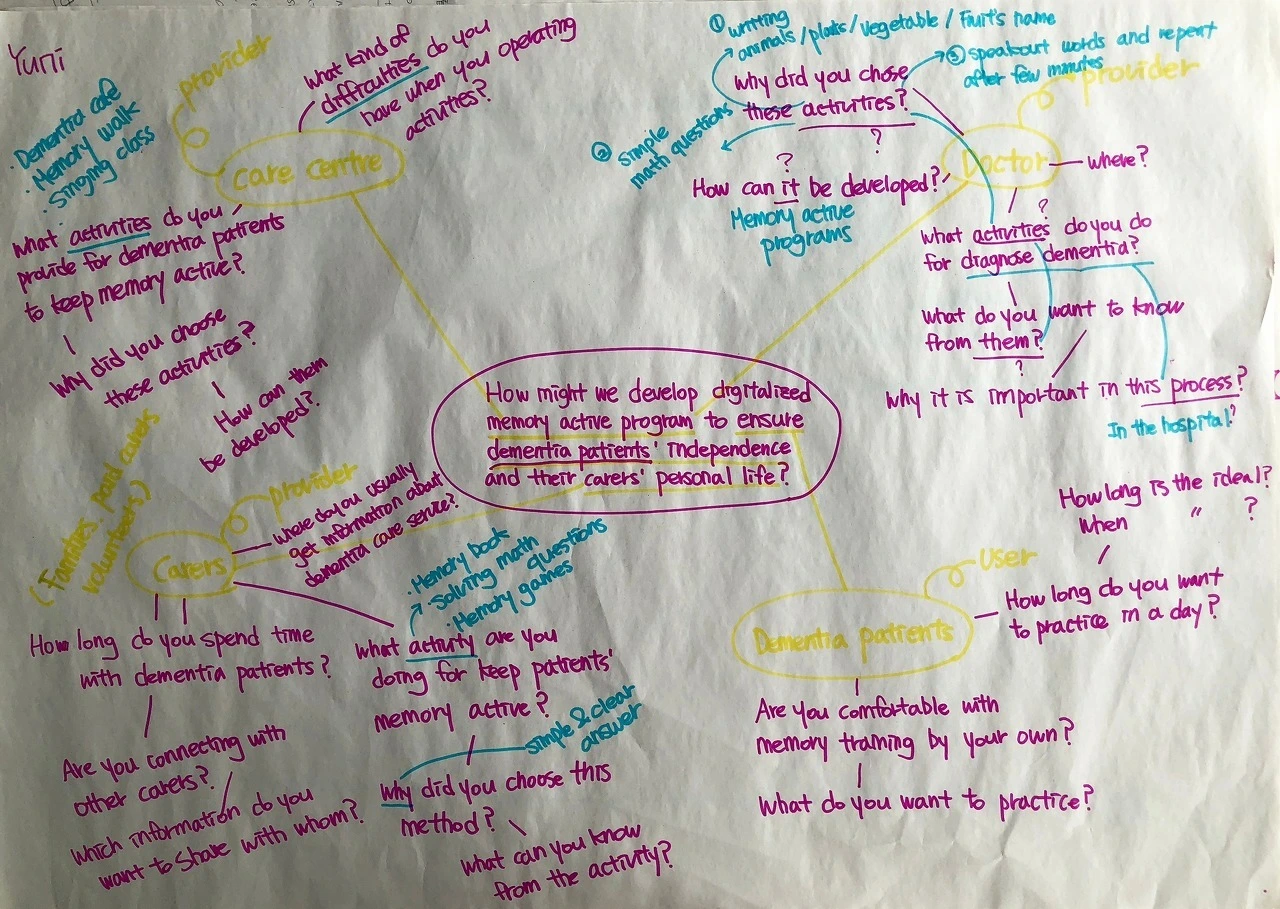 Yuni
provider
care centre
what kind of
difficulties do you
have when you operating
activities?
· Dementia cafe
· Memory walk
· Singing class
what activities do you
provide for dementia patients
to keep memory active?
Why did you choose
these activities?
How can them
be developed?
① writing
animals/plants/vegetable/Fruit's name
③ speakout words and repeat
after few minutes
why did you chose
these activities?
?
② simple
math questions
provider
Doctor
where?
?
How can it be developed?
Memory active
programs
?
what activities do you do
for diagnose dementia?
what do you want to know
from them?
?
why it is important in this process?
In the hospital?
How might we develop digitalized
memory active program to ensure
dementia patients' independence
and their carers' personal life?
(Families, paid carers
volunteers)
provider
Carers
where do you usually
get information about
dementia care service?
How long do you spend time
with dementia patients?
Are you connecting with
other carers?
which information do you
want to share with whom?
· Memory book
· Solving math questions
· Memory games
what activity are you
doing for keep patients'
memory active?
simple & clear
answer
why did you choose this
method?
what can you know
from the activity?
User
Dementia patients
How long is the ideal?
When " ?
How long do you want
to practice in a day?
Are you comfortable with
memory training by your own?
What do you want to practice?